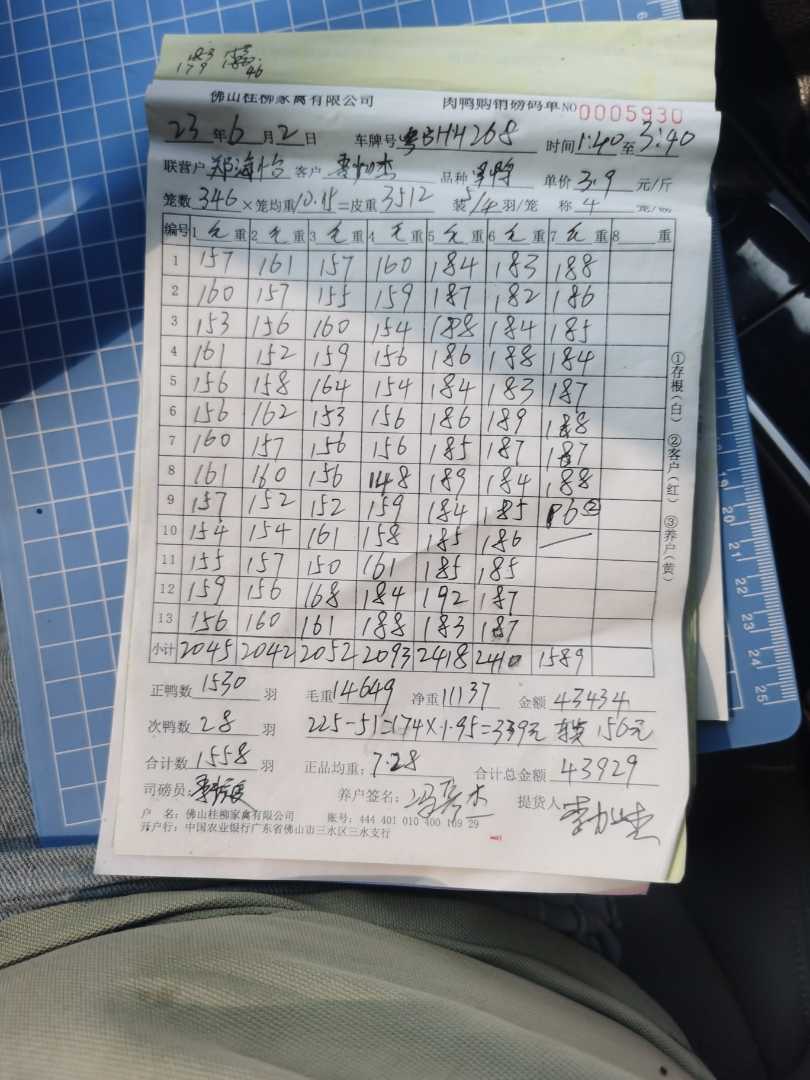 183
179 46
佛山桂柳家禽有限公司 肉鸭购销磅码单 NO 0005930
23年6月2日 车牌号 粤BH4268 时间1:40至3:40
联营户 郑海怡 客户 品种 单价 3.9 元/斤
笼数 346 ×笼均重10.15=皮重 3512 装5/4羽/笼 称 4
编号 1 毛重 2 毛重 3 毛重 4 毛重 5 毛重 6 毛重 7 毛重 8 重
1 157 161 157 160 184 183 188
2 160 157 155 159 187 182 186
3 153 156 160 154 188 184 185
4 161 152 159 156 186 188 184
5 156 158 164 154 184 183 187
6 156 162 153 156 186 189 188
7 160 157 156 156 185 187 187
8 161 160 156 148 189 184 188
9 157 152 152 159 184 185 96②
10 154 154 161 158 185 186
11 155 157 150 161 185 185
12 159 156 168 184 192 187
13 156 160 161 188 183 187
小计 2045 2042 2052 2093 2418 2410 1589
正鸭数 1530 羽 毛重14649 净重11137 金额 43434
次鸭数 28 羽 225-51=174×1.95=339元 156元
合计数 1558 羽 正品均重: 7.28 合计总金额 43929
司磅员: 养户签名: 冯 杰 提货人
户 名: 佛山桂柳家禽有限公司 账号: 444 401 010 400 169 29
开户行: 中国农业银行广东省佛山市三水区三水支行
①存根(白) ②客户(红) ③养户(黄)
19
20
21
22
23
24
25